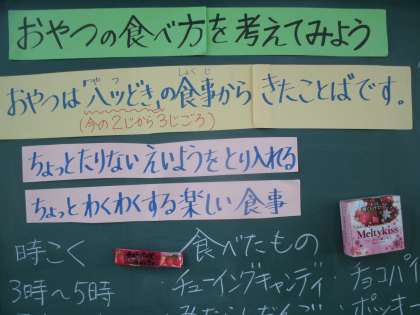 おやつの食べ方を考えてみよう
おやつは"八ツどき"の食事から きたことばです。
(今の2じから3じごろ)
ちょっとたりないえいようをとり入れる
ちょっとわくわくする楽しい食事
時こく
食べたもの
Meltykiss
3時〜5時
・チューイングキャンディ
・チョコパイ
・ポッキー